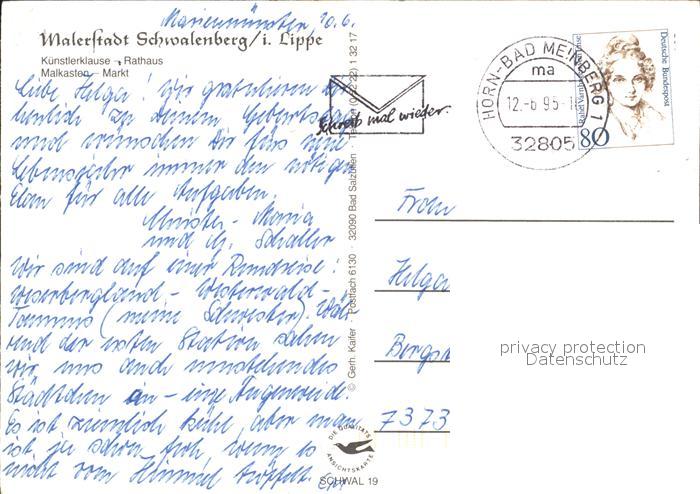 Marienmünster 10.6.
Malerstadt Schwalenberg/i. Lippe
Künstlerklause - Rathaus
Malkasten - Markt
Liebe Helga! Wir gratulieren
herzlich zu Deinem Geburtstag
und wünschen Dir fürs neue
Lebensjahr immer den nötigen
Elan für alle Aufgaben.
Maria
und Schaller
Wir sind auf einer Rundreise:
Weserbergland - Westerwald -
Taunus (meine Schwester). Wäh-
rend der ersten Station sahen
wir uns auch umstehendes
Städtchen an - eine Augenweide.
Es ist ziemlich kühl, aber man
ist ja schon froh, wenn es
nicht vom Himmel tröpfelt.
© Gerh. Kaifer · Postfach 6130 · 32090 Bad Salzuflen · 1 32 17
DIE QUALITÄTS
ANSICHTSKARTE
SCHWAL 19
Schreib mal wieder
HORN-BAD MEINBERG 1
ma
12.-6 95-1
32805
Deutsche Bundespost
80
Frau
Helga
Bergst
7373
privacy protection
Datenschutz